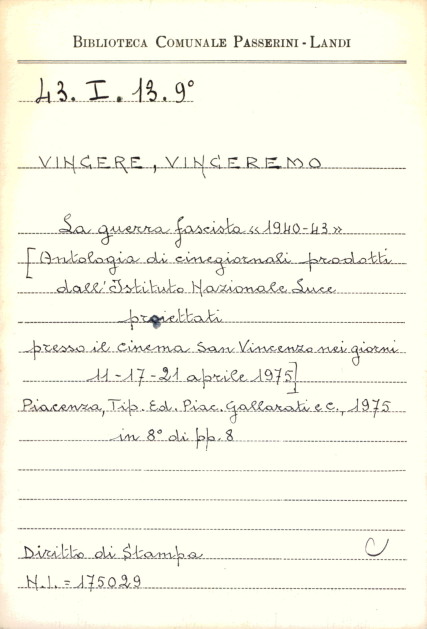 BIBLIOTECA COMUNALE PASSERINI - LANDI
43. I. 13. 9°
VINCERE, VINCEREMO
La guerra fascista «1940-43»
[Antologia di cinegiornali prodotti
dall'Istituto Nazionale Luce
proiettati
presso il cinema San Vincenzo nei giorni
11-17-21 aprile 1975]
Piacenza, Tip. Ed. Piac. Gallarati e C., 1975
in 8° di pp. 8
Diritto di Stampa C
N.I. = 175029